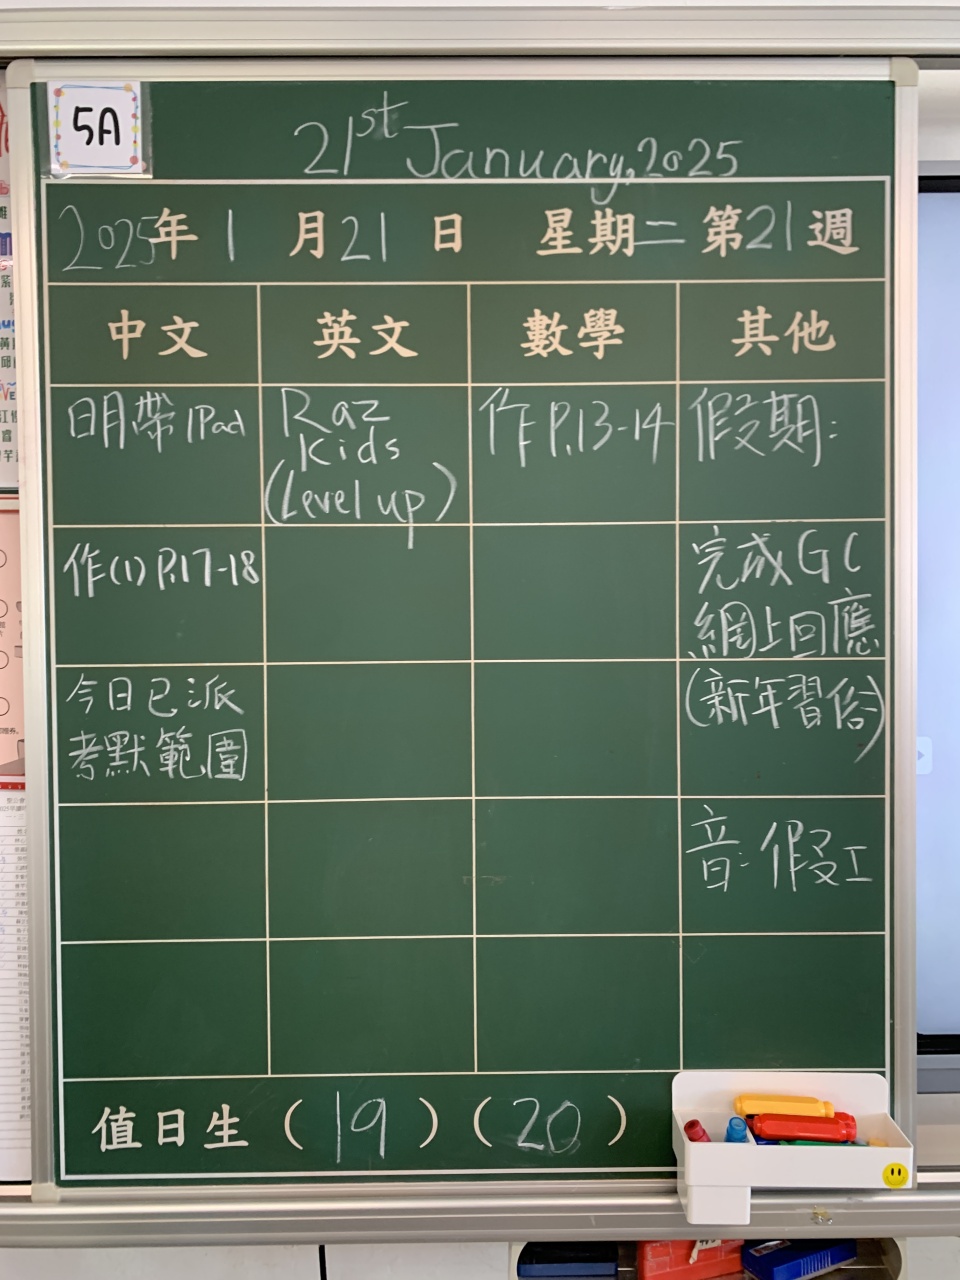 5A
21st January, 2025
2025年1月21日 星期二 第21週
中文 英文 數學 其他
明帶IPad
作(1) P.17-18
今日已派
考默範圍
Raz
Kids
(Level up)
作P.13-14
假期:
完成GC
網上回應
(新年習俗)
音:假工
值日生 (19) (20)